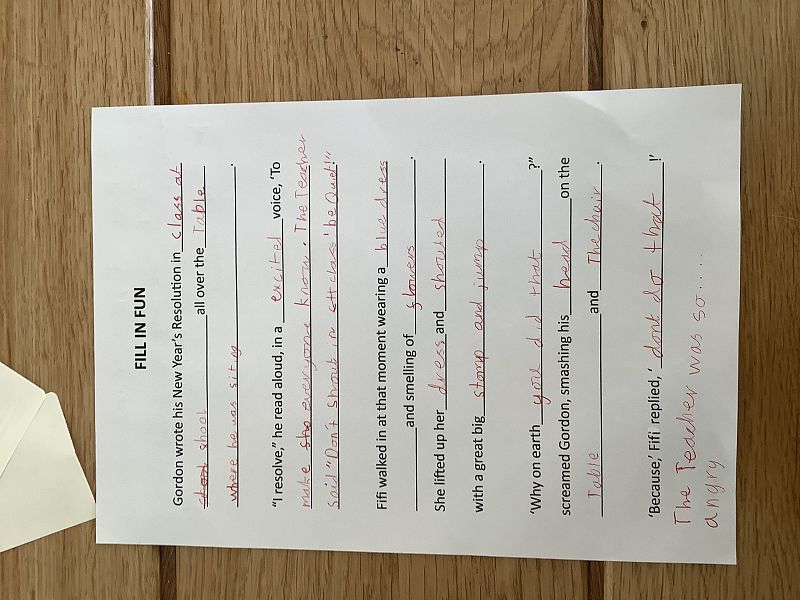 FILL IN FUN
Gordon wrote his New Year's Resolution in class at
shool all over the Table
where he was siting.
"I resolve," he read aloud, in a excited voice, 'To
make everyone know. The Teacher
said "Don't shout in class' be Quiet!"
Fifi walked in at that moment wearing a blue dress
and smelling of flowers.
She lifted up her dress and shouted
with a great big stomp and jump.
'Why on earth you did that?"
screamed Gordon, smashing his head on the
Table and The chair.
'Because,' Fifi replied, 'dont do that!'
The Teacher was so.....
angry